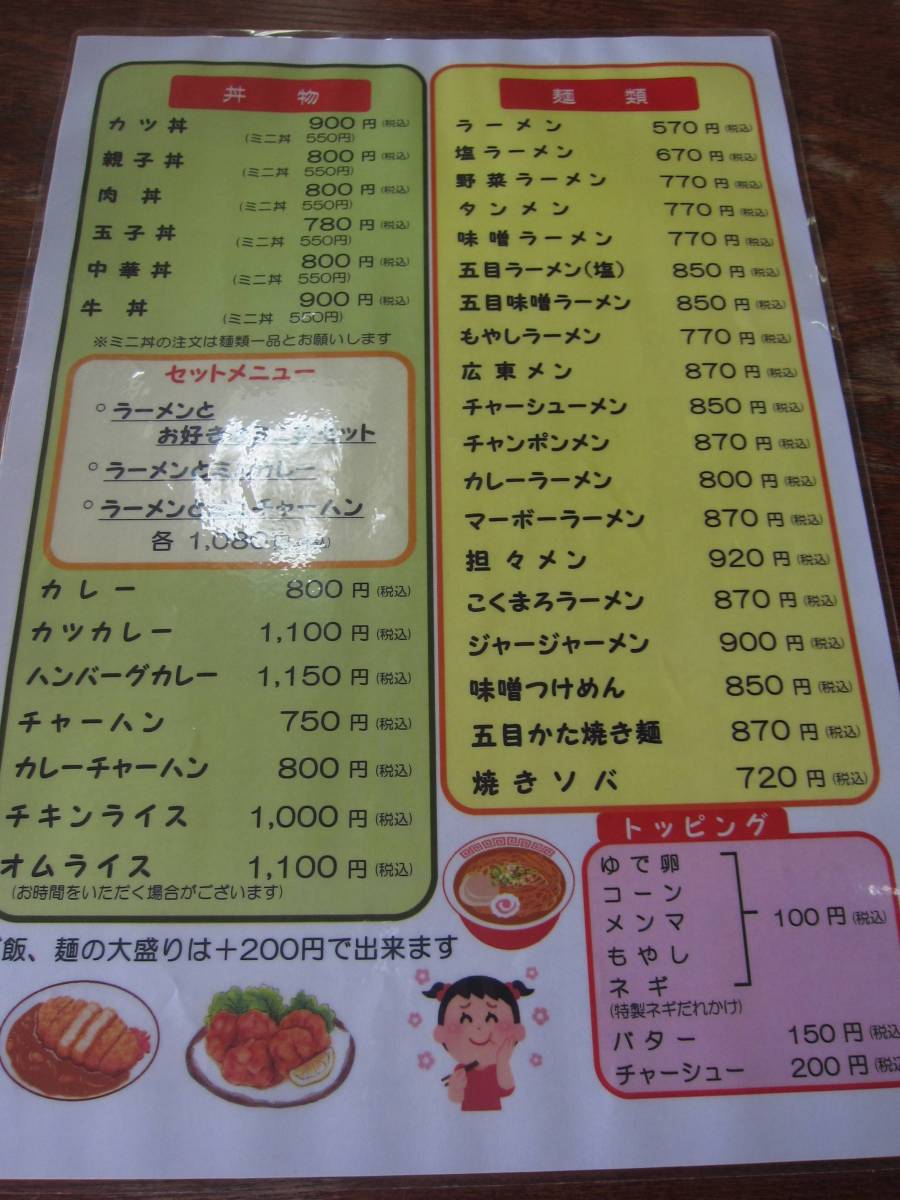 丼 物
カツ丼 900円(税込)
(ミニ丼 550円)
親子丼 800円(税込)
(ミニ丼 550円)
肉 丼 800円(税込)
(ミニ丼 550円)
玉子丼 780円(税込)
(ミニ丼 550円)
中華丼 800円(税込)
(ミニ丼 550円)
牛 丼 900円(税込)
(ミニ丼 550円)
※ミニ丼の注文は麺類一品とお願いします
セットメニュー
○ラーメンと
お好きなミニ丼セット
○ラーメンとミニカレー
○ラーメンとミニチャーハン
各 1,080円(税込)
カレー 800円(税込)
カツカレー 1,100円(税込)
ハンバーグカレー 1,150円(税込)
チャーハン 750円(税込)
カレーチャーハン 800円(税込)
チキンライス 1,000円(税込)
オムライス 1,100円(税込)
(お時間をいただく場合がございます)
飯、麺の大盛りは+200円で出来ます
麺 類
ラーメン 570円(税込)
塩ラーメン 670円(税込)
野菜ラーメン 770円(税込)
タンメン 770円(税込)
味噌ラーメン 770円(税込)
五目ラーメン(塩) 850円(税込)
五目味噌ラーメン 850円(税込)
もやしラーメン 770円(税込)
広東メン 870円(税込)
チャーシューメン 850円(税込)
チャンポンメン 870円(税込)
カレーラーメン 800円(税込)
マーボーラーメン 870円(税込)
担々メン 920円(税込)
こくまろラーメン 870円(税込)
ジャージャーメン 900円(税込)
味噌つけめん 850円(税込)
五目かた焼き麺 870円(税込)
焼きソバ 720円(税込)
トッピング
ゆで卵
コーン
メンマ 100円(税込)
もやし
ネギ
(特製ネギだれかけ)
バター 150円(税込)
チャーシュー 200円(税込)